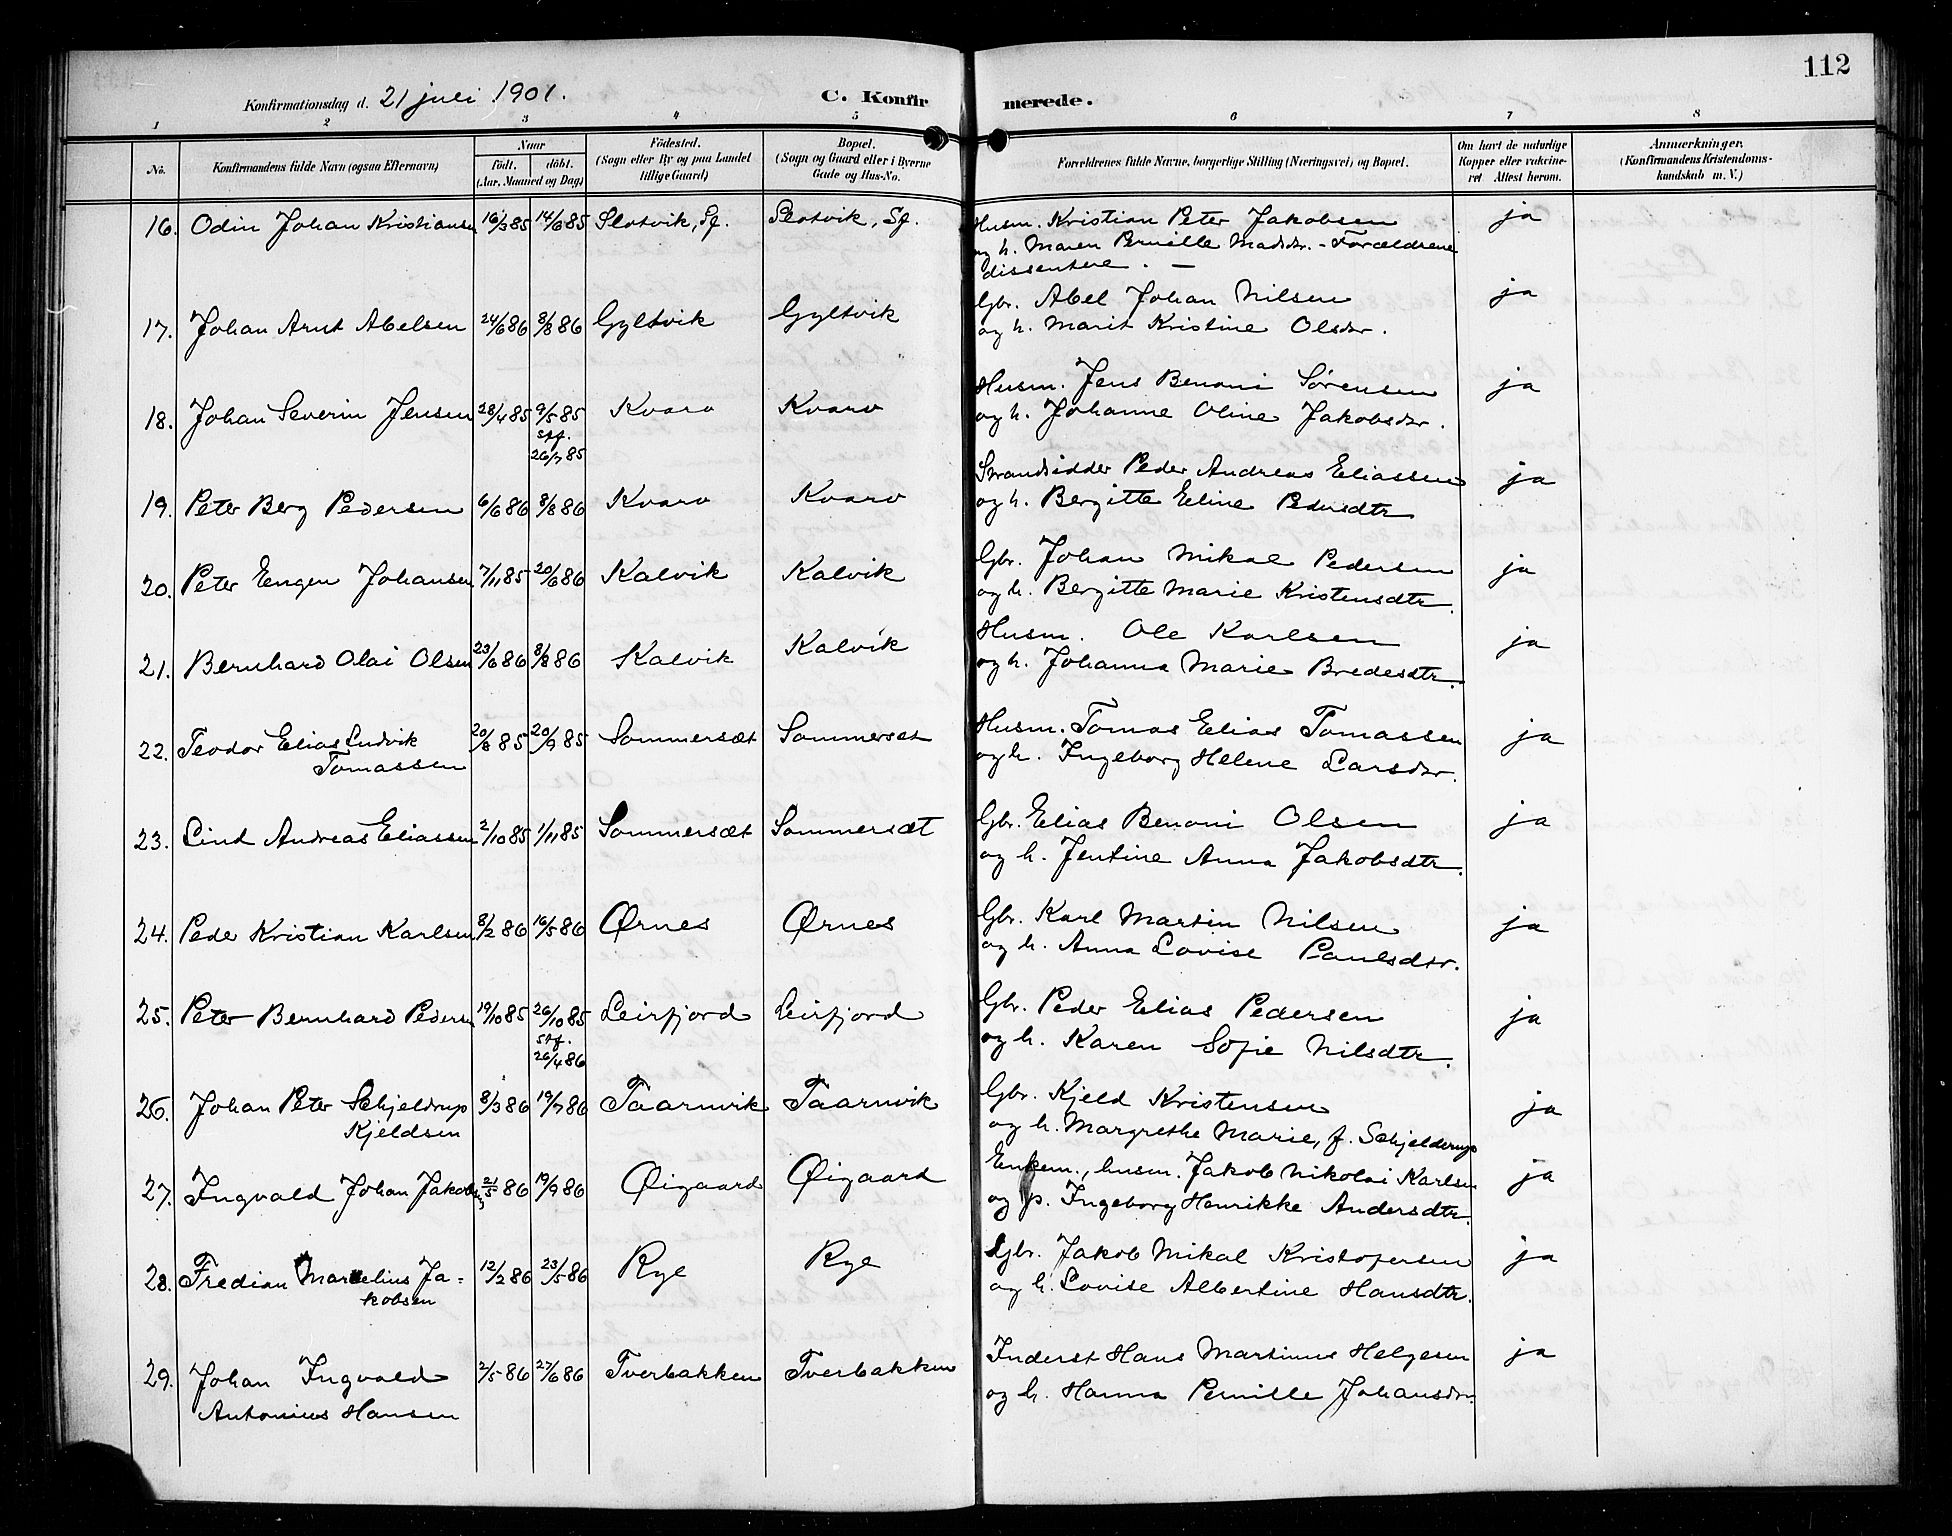 112
Konfirmationsdag d. 21 juli 1901. C. Konfirmerede.
1 2 3 4 5 6 7 8
No. Konfirmandens fulde Navn (ogsaa Efternavn) Naar født. døbt. (Aar, Maaned og Dag) Fødested. (Sogn eller By og paa Landet tillige Gaard) Bopæl. (Sogn og Gaard eller i Byerne Gade og Hus-No. Forældrenes fulde Navne, borgerlige Stilling (Næringsvei) og Bopæl. Om havt de naturlige Kopper eller vaccineret Attest herom. Anmærkninger. (Konfirmandens Kristendomskundskab m. V.)
16. Odin Johan Kristiansen 16/3 85 14/6 85 Slotvik, Sf. Slotvik, Sf. Husm. Kristian Peter Jakobsen ja
og h. Maren Pernille Madsdr. - Forældrene
dissentere. -
17. Johan Arnt Abelsen 24/6 86 8/8 86 Gyltvik Gyltvik Gbr. Abel Johan Nilsen ja
og h. Marit Kristine Olsdr.
18. Johan Severin Jensen 28/4 85 9/5 85 Kvarv Kvarv Husm. Jens Benoni Sørensen ja
stf. 26/7 85 og h. Johanne Oline Jakobsdr.
19. Peter Berg Pedersen 6/6 86 8/8 86 Kvarv Kvarv Strandsidder Peder Andreas Eliassen ja
og h. Bergitte Eline Pedersdtr
20. Peter Engen Johansen 7/11 85 20/6 86 Kalvik Kalvik Gbr. Johan Mikal Pedersen ja
og h. Bergitte Marie Kristensdtr.
21. Bernhard Olai Olsen 23/6 86 8/8 86 Kalvik Kalvik Husm. Ole Karlsen ja
og h. Johanna Marie Bredesdtr.
22. Teodor Elias Ludvik 20/8 85 20/9 85 Sommersæt Sommersæt Husm. Tomas Elias Tomassen ja
Tomassen og h. Ingeborg Helene Larsdr.
23. Lind Andreas Eliassen 2/10 85 1/11 85 Sommersæt Sommersæt Gbr. Elias Benoni Olsen ja
og h. Jentine Anna Jakobsdtr.
24. Peder Kristian Karlsen 8/2 86 16/5 86 Ørnes Ørnes Gbr. Karl Martin Nilsen ja
og h. Anna Lovise Paulsdtr.
25. Peter Bernhard Pedersen 19/10 85 26/10 85 Leirfjord Leirfjord Gbr. Peder Elias Pedersen ja
stf. 26/4 86 og h. Karen Sofie Nilsdtr.
26. Johan Peter Schjeldrup 8/3 86 19/7 86 Taarnvik Taarnvik Gbr. Kjeld Kristensen ja
Kjeldsen og h. Margrethe Marie, f. Schjelderup
27. Ingvald Johan Jakobsen 2/5 86 19/9 86 Øigaard Øigaard Enkem., husm. Jakob Nikolai Karlsen ja
og p. Ingeborg Henrikke Andersdtr.
28. Fredian Marelius Ja- 12/2 86 23/5 86 Rye Rye Gbr. Jakob Mikal Kristofersen ja
kobsen og h. Lovise Albertine Hansdtr.
29. Johan Ingvald 2/5 86 27/6 86 Tverbakken Tverbakken Inderst Hans Martinus Helgesen ja
Antonius Hansen og h. Hanna Pernille Johansdr.